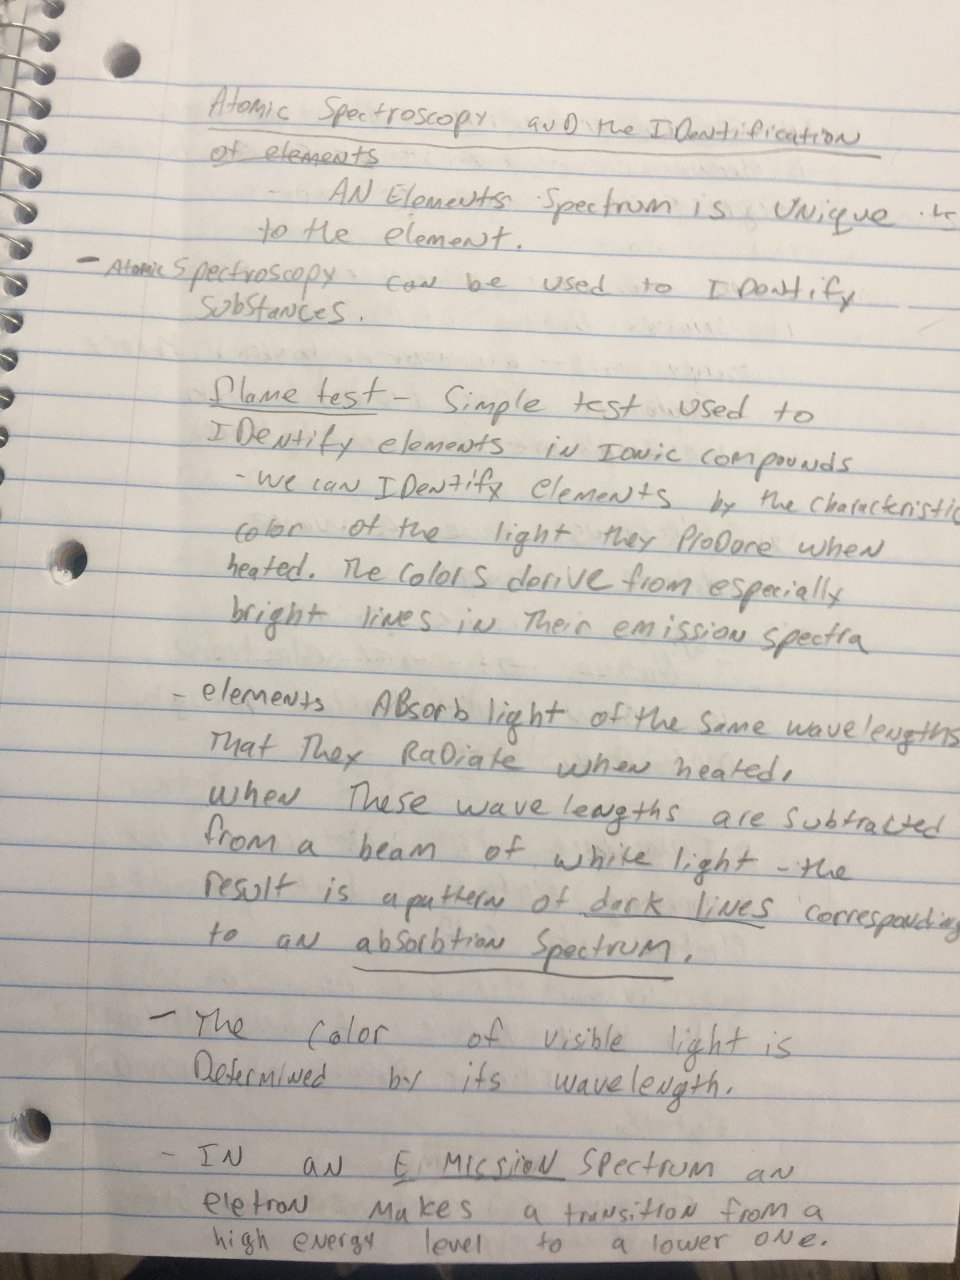 Atomic Spectroscopy and the IDentification
of elements
- AN Elements Spectrum is UNique
to the element.
- Atomic Spectroscopy can be used to IDentify
Substances.
flame test - Simple test used to
IDentify elements in Ionic compounds
- we can IDentify elements by the characteristic
color of the light they ProDore when
heated. The Colors derive from especially
bright lines in Their emission spectra
- elements ABsorb light of the same wavelengths
That They RaDiate when heated,
when These wave lengths are subtracted
from a beam of white light - the
result is a pattern of dark lines corresponding
to an absorbtion Spectrum.
- The Color of visible light is
Determined by its wavelength.
- IN an EMission Spectrum an
eletron Makes a transition from a
high energy level to a lower one.